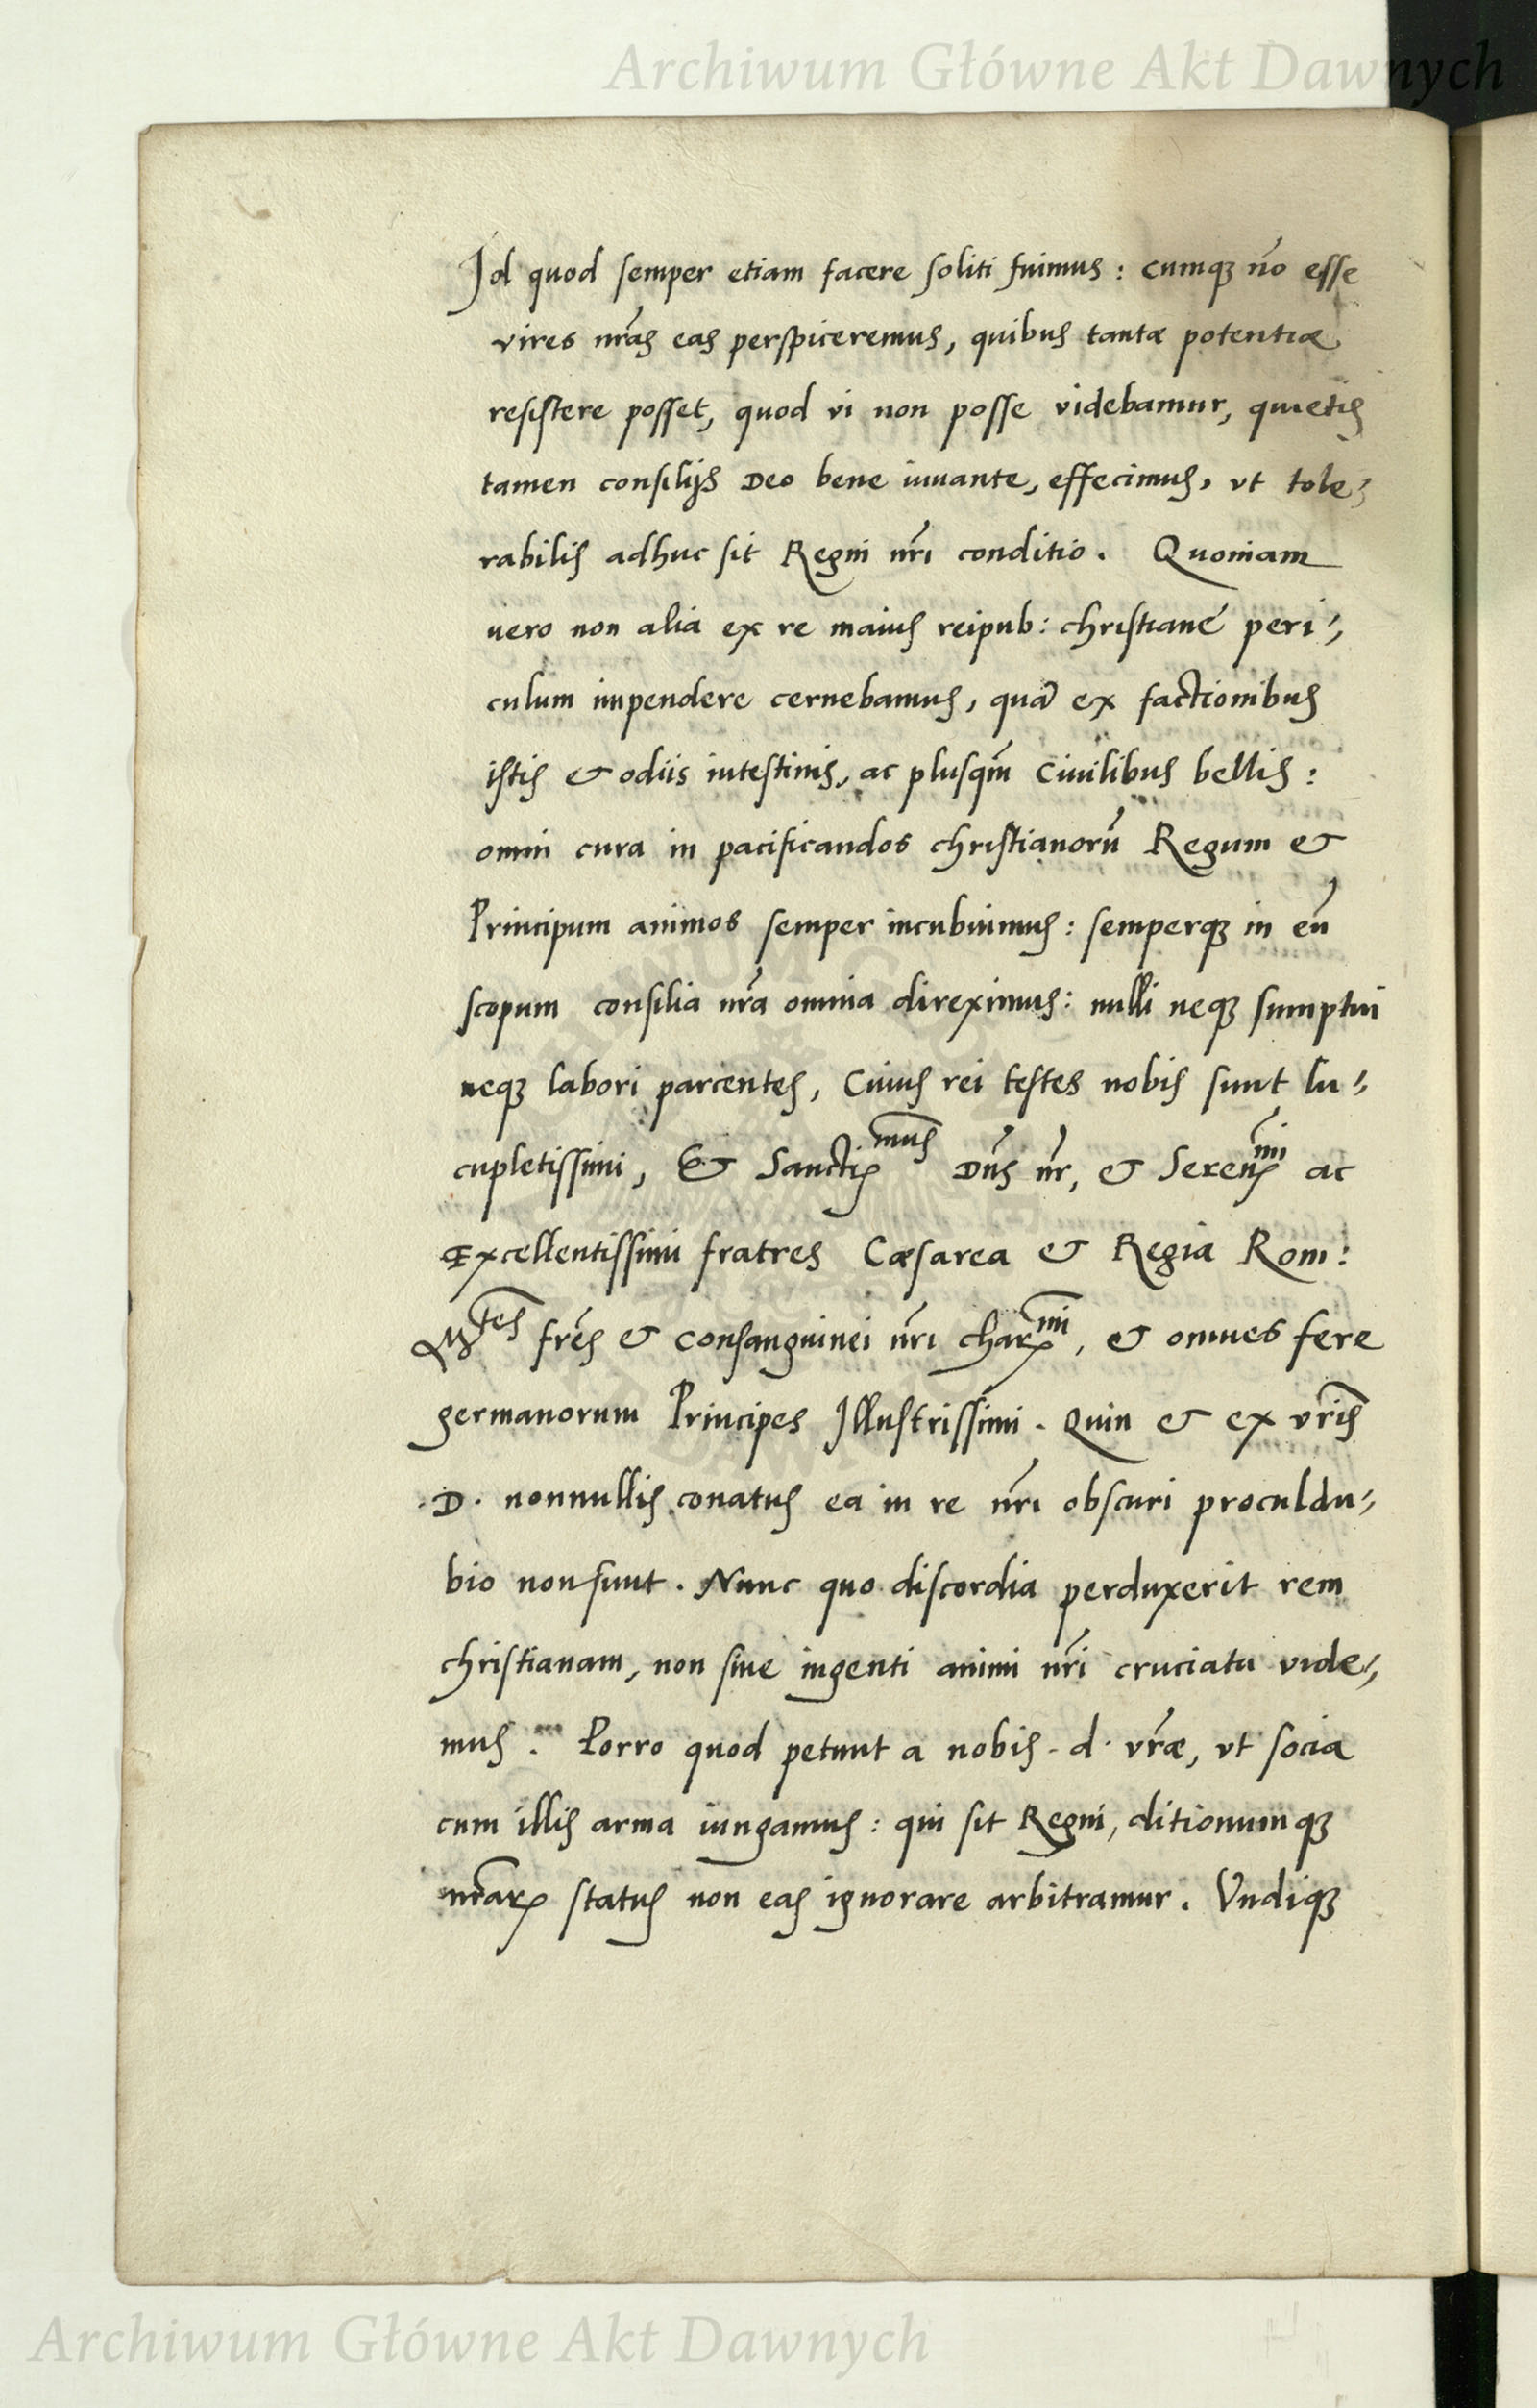 Archiwum Główne Akt Dawnych
Id quod semper etiam facere soliti fuimus : cumqꝫ nõ esse
vires nr̃as eas perspiceremus, quibus tantæ potentiæ
resistere posset, quod vi non posse videbamur, quietis
tamen consilijs Deo bene iuuante, effecimus, vt tole-
rabilis adhuc sit Regni nr̃i conditio . Quoniam
uero non alia ex re maius reipub: christiane peri-
culum impendere cernebamus, quã ex factionibus
istis & odiis intestinis, ac plusqm̃ Ciuilibus bellis :
omni cura in pacificandos christianorũ Regum &
Principum animos semper incubuimus : semperqꝫ in eũ
scopum consilia nr̃a omnia direximus : nulli neqꝫ sumptui
neqꝫ labori parcentes, Cuius rei testes nobis sunt lu-
cupletissimi, & Sanctis mus Dñs nr̃, & Seren mi ac
Excellentissimi fratres Cæsarea & Regia Rom :
M tes fr̃es & Consanguinei nr̃i char mi, & omnes fere
germanorum Principes Illustrissimi . Quin & ex vr̃is
.D. nonnullis conatus ea in re nr̃i obscuri proculdu-
bio non sunt . Nunc quo discordia perduxerit rem
christianam, non sine ingenti animi nr̃i cruciatu vide-
mus . Porro quod petunt a nobis . d . vr̃æ, vt socia
cum illis arma iungamus : qui sit Regni, ditionumqꝫ
nr̃arꝝ status non eas ignorare arbitramur . Vndiqꝫ
Archiwum Główne Akt Dawnych